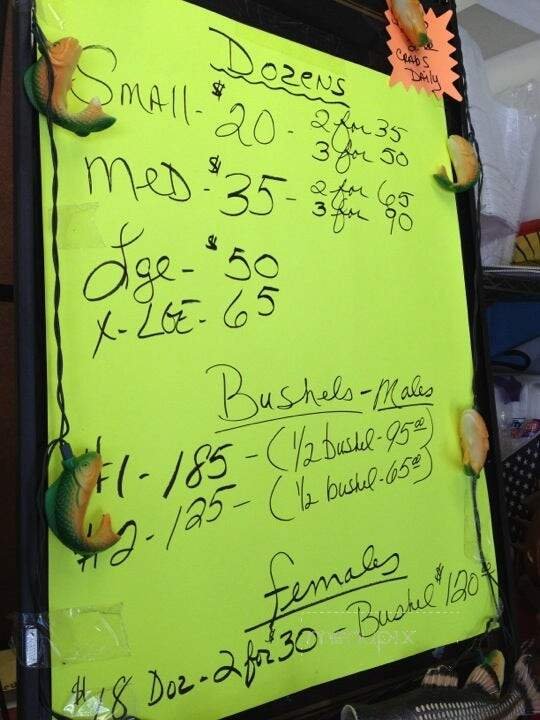 CRABS
Daily
DOZENS
SMALL - $20 - 2 for 35
3 for 50
MED - $35 - 2 for 65
3 for 90
Lge - $50
X-LGE - 65
Bushels - Males
#1 - 185 - (1/2 bushel - 95.00)
#2 - 125 - (1/2 bushel - 65.00)
females
$18 Doz - 2 for $30 - Bushel $120